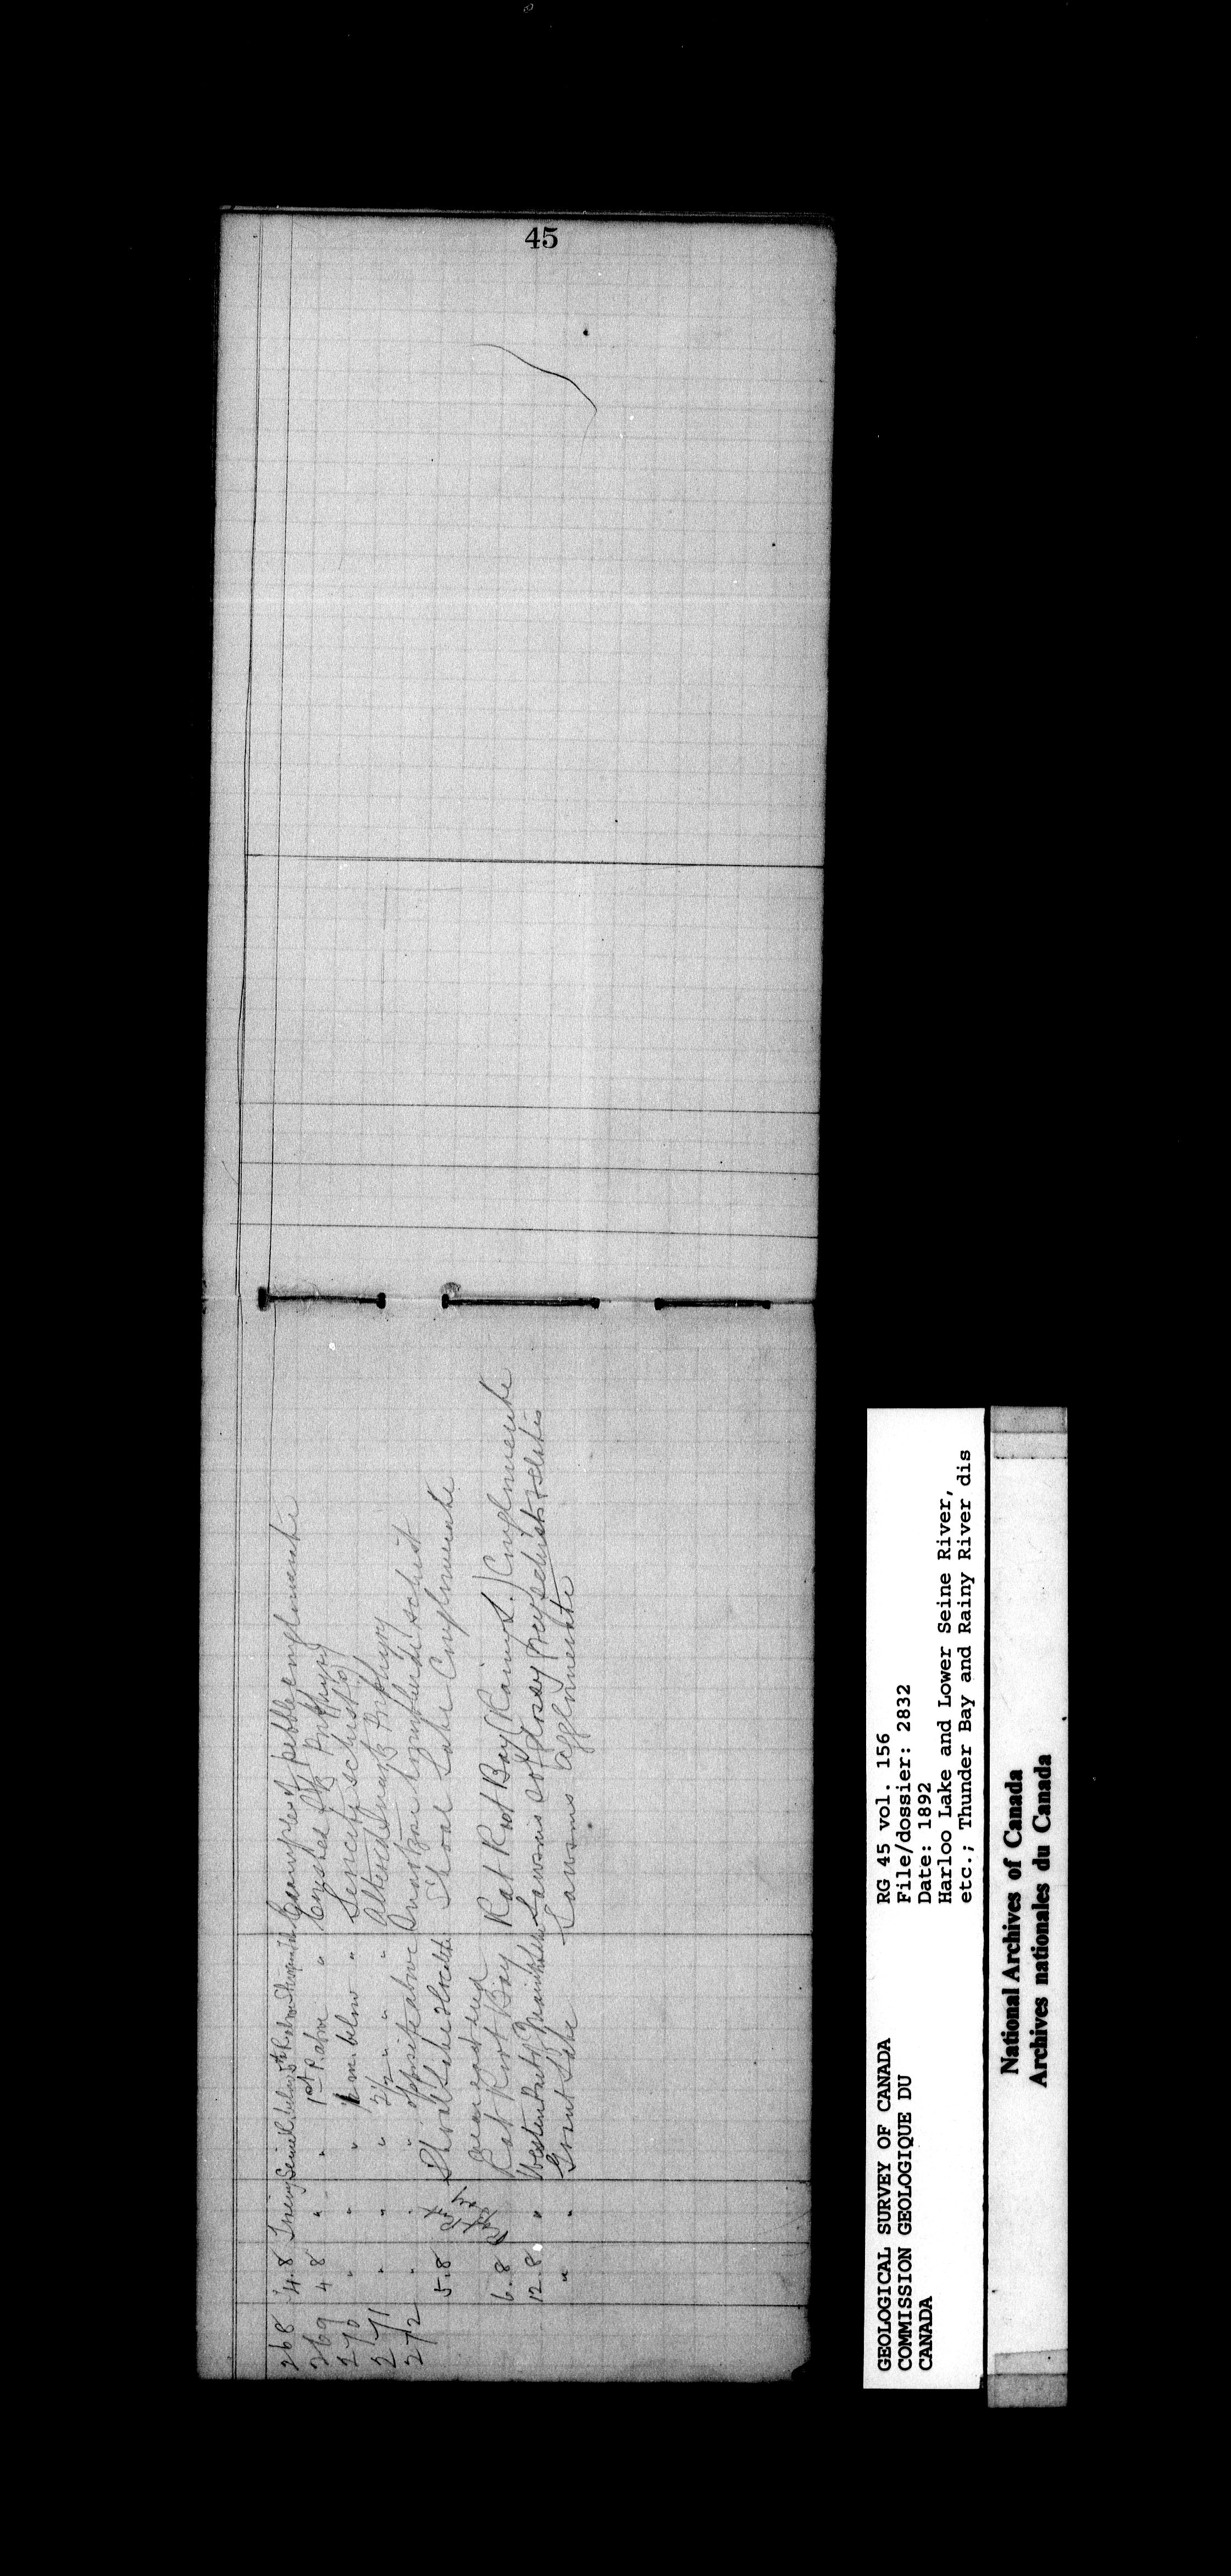 45
268 4.8 Irving Seine R. below Examples of pebble conglomerate
269 4.8 " " 1st R. above " Crushed Qtz Porphyry
270 " " " 1/2 m. below " Sericite schist (?)
271 " " " 2 1/2 " " " Altered Quartz Porphyry
272 " " " opposite above hornblende schist
5.8 Shoal Lake locality Shoal Lake Conglomerate
near east end
6.8 Rat Root Bay Rat Root Bay (Rainy L.) Conglomerate
12.8 " Western part of Lawsons glossy grey schists & slates
" " Grant Lake Lawsons agglomerate
GEOLOGICAL SURVEY OF CANADA
COMMISSION GEOLOGIQUE DU
CANADA
RG 45 vol. 156
File/dossier: 2832
Date: 1892
Harloo Lake and Lower Seine River,
etc.; Thunder Bay and Rainy River dis
National Archives of Canada
Archives nationales du Canada